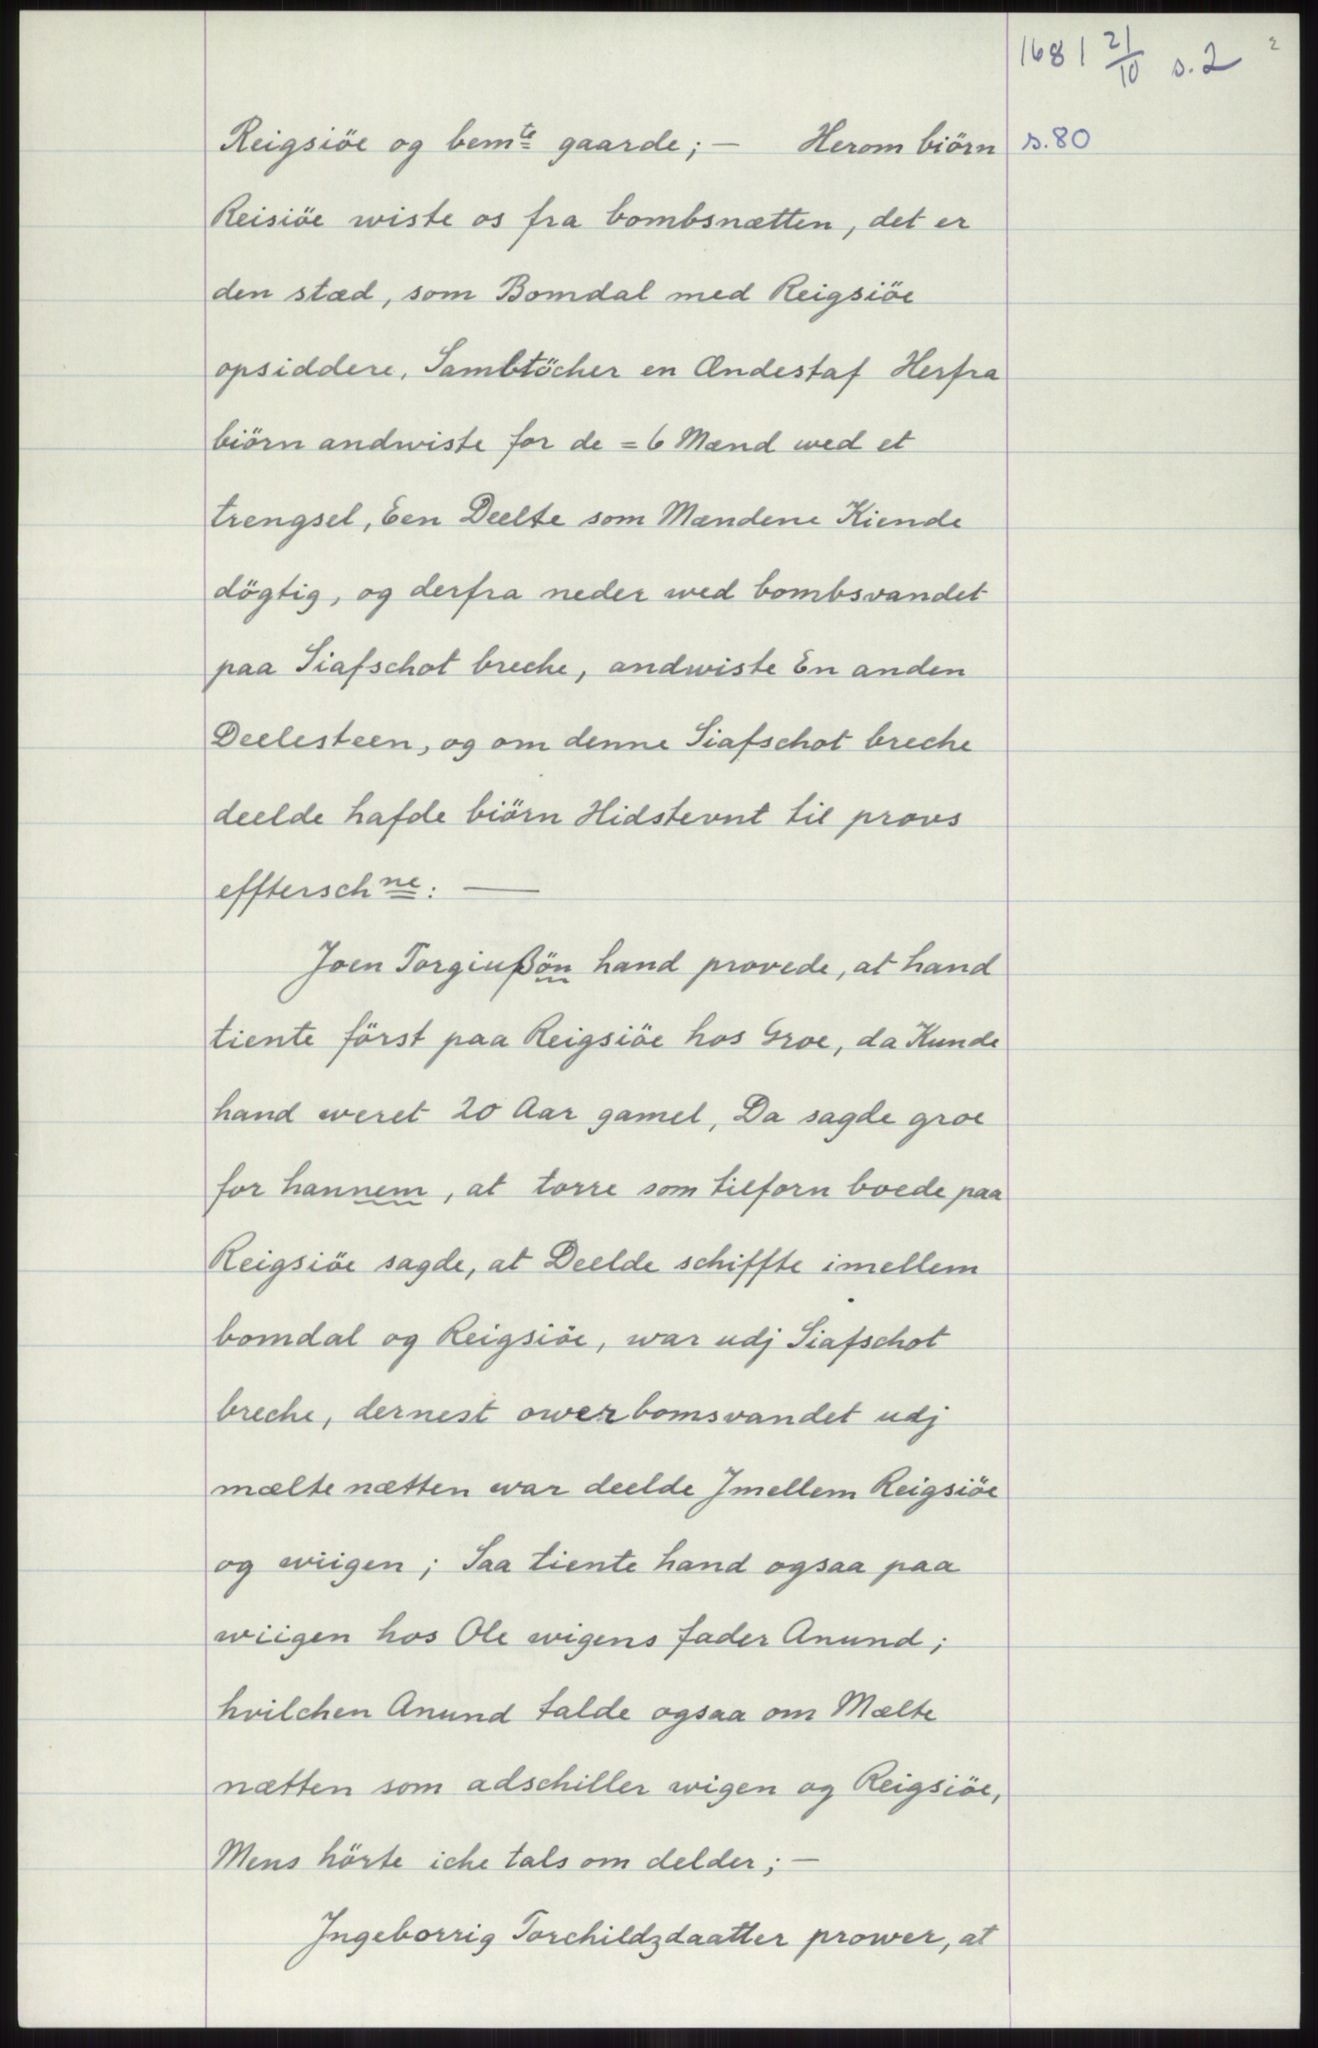 1681 21/10 s.2 2
Reigsiöe og bemte gaarde; — Herom biörn s.80
Reisiöe wiste os fra bombsnætten, det er
den stæd, som Bomdal med Reigsiöe
opsiddere, Sambtöcher en Ændestaf Herfra
biörn andwiste for de = 6 Mænd wed et
trengsel, Een Deelte som Mændene Kiende
dögtig, og derfra neder wed bombsvandet
paa Siafschot breche, andwiste En anden
Deelesteen, og om denne Siafschot breche
deelde hafde biörn Hidstevnt til provs
efftersch ne: —
Joen Torgiußön hand provede, at hand
tiente först paa Reigsiöe hos Groe, da Kunde
hand weret 20 Aar gamel, Da sagde groe
for hannem, at torre som tilforn boede paa
Reigsiöe sagde, at Deelde schiffte imellem
bomdal og Reigsiöe, war udj Siafschot
breche, dernest ower bomsvandet udj
mælte nætten war deelde Jmellem Reigsiöe
og wiigen; Saa tiente hand ogsaa paa
wiigen hos Ole wigens fader Anund;
hvilchen Anund talde ogsaa om Mælte
nætten som adschiller wigen og Reigsiöe,
Mens hörte iche tals om delder; —
Jngeborrig Torchildzdaatter prower, at